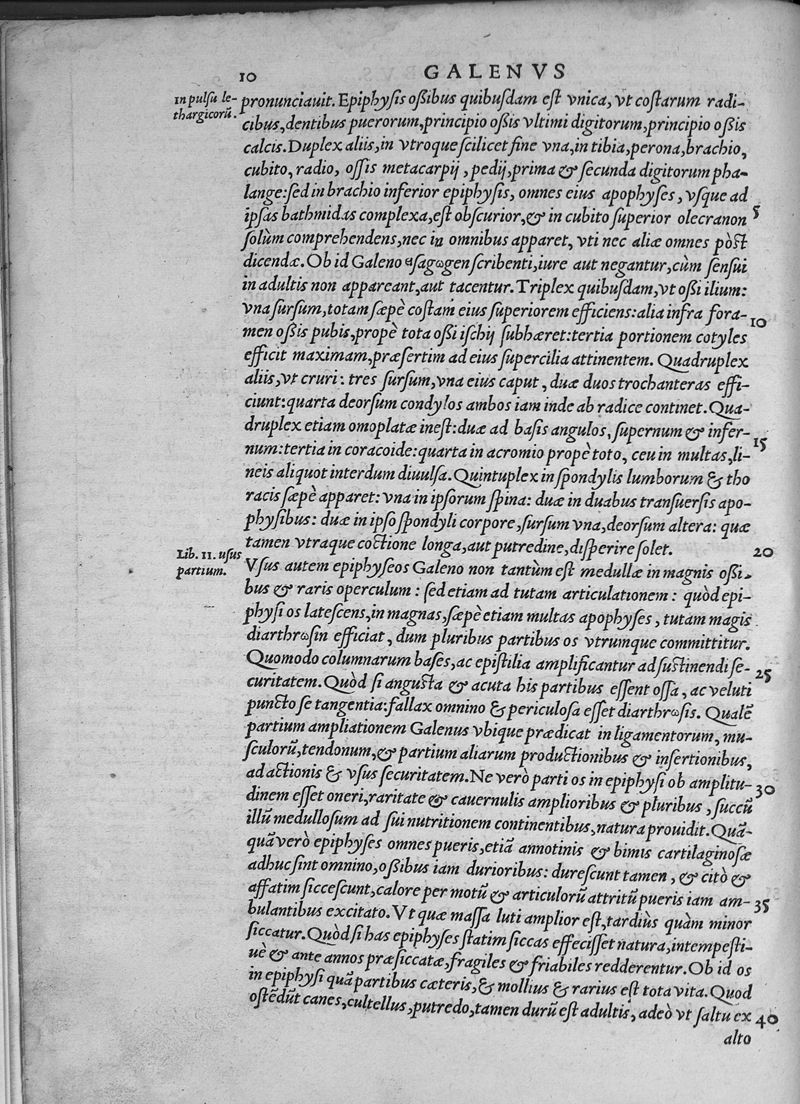 10
GALENVS
in pulsu le-
thargicorũ.
pronunciauit. Epiphysis oßibus quibusdam est vnica, vt costarum radi-
cibus, dentibus puerorum, principio oßis vltimi digitorum, principio oßis
calcis. Duplex aliis, in vtroque scilicet fine vna, in tibia, perona, brachio,
cubito, radio, ossis metacarpij, pedij, prima & secunda digitorum pha-
lange: sed in brachio inferior epiphysis, omnes eius apophyses, vsque ad
ipsas bathmidas complexa, est obscurior, & in cubito superior olecranon
5
solùm comprehendens, nec in omnibus apparet, vti nec aliæ omnes pòst
dicendæ. Ob id Galeno scribenti, iure aut negantur, cùm sensui
in adultis non appareant, aut tacentur. Triplex quibusdam, vt oßi ilium:
vna sursum, totam sæpè costam eius superiorem efficiens: alia infra fora-
10
men oßis pubis, propè tota oßi ischij subhæret: tertia portionem cotyles
efficit maximam, præsertim ad eius supercilia attinentem. Quadruplex
aliis, vt cruri: tres sursum, vna eius caput, duæ duos trochanteras effi-
ciunt: quarta deorsum condylos ambos iam inde ab radice continet. Qua-
druplex etiam omoplatæ inest: duæ ad basis angulos, supernum & infer-
15
num: tertia in coracoide: quarta in acromio propè toto, ceu in multas, li-
neis aliquot interdum diuulsa. Quintuplex in spondylis lumborum & tho
racis sæpè apparet: vna in ipsorum spina: duæ in duabus transuersis apo-
physibus: duæ in ipso spondyli corpore, sursum vna, deorsum altera: quæ
tamen vtraque coctione longa, aut putredine, disperire solet.
20
Lib. 11. usus
partium.
Vsus autem epiphyseos Galeno non tantùm est medullæ in magnis oßi-
bus & raris operculum: sed etiam ad tutam articulationem: quòd epi-
physi os latescens, in magnas, sæpè etiam multas apophyses, tutam magis
diarthrωsin efficiat, dum pluribus partibus os vtrumque committitur.
Quomodo columnarum bases, ac epistilia amplificantur ad sustinendi se-
25
curitatem. Quòd si angusta & acuta his partibus essent ossa, ac veluti
puncto se tangentia: fallax omnino & periculosa esset diarthrωsis. Qualẽ
partium ampliationem Galenus vbique prædicat in ligamentorum, mu-
sculorũ, tendonum, & partium aliarum productionibus & insertionibus,
ad actionis & vsus securitatem. Ne verò parti os in epiphysi ob amplitu-
30
dinem esset oneri, raritate & cauernulis amplioribus & pluribus, succũ
illũ medullosum ad sui nutritionem continentibus, natura prouidit. Quã-
quã verò epiphyses omnes pueris, etiã annotinis & bimis cartilaginosæ
adhuc sint omnino, oßibus iam durioribus: durescunt tamen, & citò &
affatim siccescunt, calore per motũ & articulorũ attritũ pueris iam am-
35
bulantibus excitato. Vt quæ massa luti amplior est, tardiùs quàm minor
siccatur. Quòd si has epiphyses statim siccas effecisset natura, intempesti-
uè & ante annos præsiccatæ, fragiles & friabiles redderentur. Ob id os
in epiphysi quã partibus cæteris, & mollius & rarius est tota vita. Quod
ostẽdũt canes, cultellus, putredo, tamen durũ est adultis, adeò vt saltu ex
40
alto